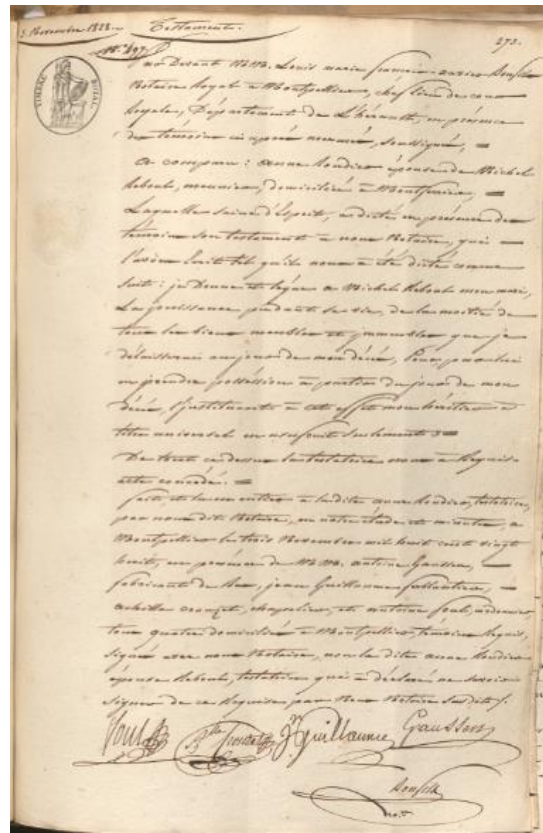 3. Novembre 1828. Testament.
N°. 497
273.
TIMBRE ROYAL
Par Devant Louis marie françois xavier Bonfils
Notaire Royal à Montpellier, chef lieu de cour
Royale, Département de L'hérault, en présence
des témoins ci après nommés, soussignés,
a comparu: anne épouse de Michel
Rebout, meunier, domiciliée à
Laquelle saine d'Esprit, a dicté en présence des
témoins son testament à nous Notaire, qui
l'avons Ecrit tel qu'il nous a été dicté comme
suit: je Donne et lègue à Michel Rebout mon mari,
La jouissance pendant sa vie, de la moitié de
tous les biens meubles et immeubles que je
délaisserai au jour de mon décès, Pour, par lui
en prendre possession à partir du jour de mon
décès, l'instituant à cet effet mon héritier à
titre universel en usufruit seulement
De tout ce dessus la testatrice nous a Requis
acte concédé.
fait et lu en entier à la dite anne testatrice,
par nous dit Notaire, en notre étude et minutes, à
Montpellier le trois Novembre mil huit cent vingt
huit, en présence de antoine Gaussen,
fabricant de jean Guillaume
achille chapelier, et antoine
tous quatre domiciliés à Montpellier, témoins Requis,
signés avec nous Notaire, non la dite anne
épouse Rebout, testatrice qui a déclaré ne savoir
signer de ce Requise par Nous Notaire susdit.
Guillaume Gaussen
Bonfils
not.